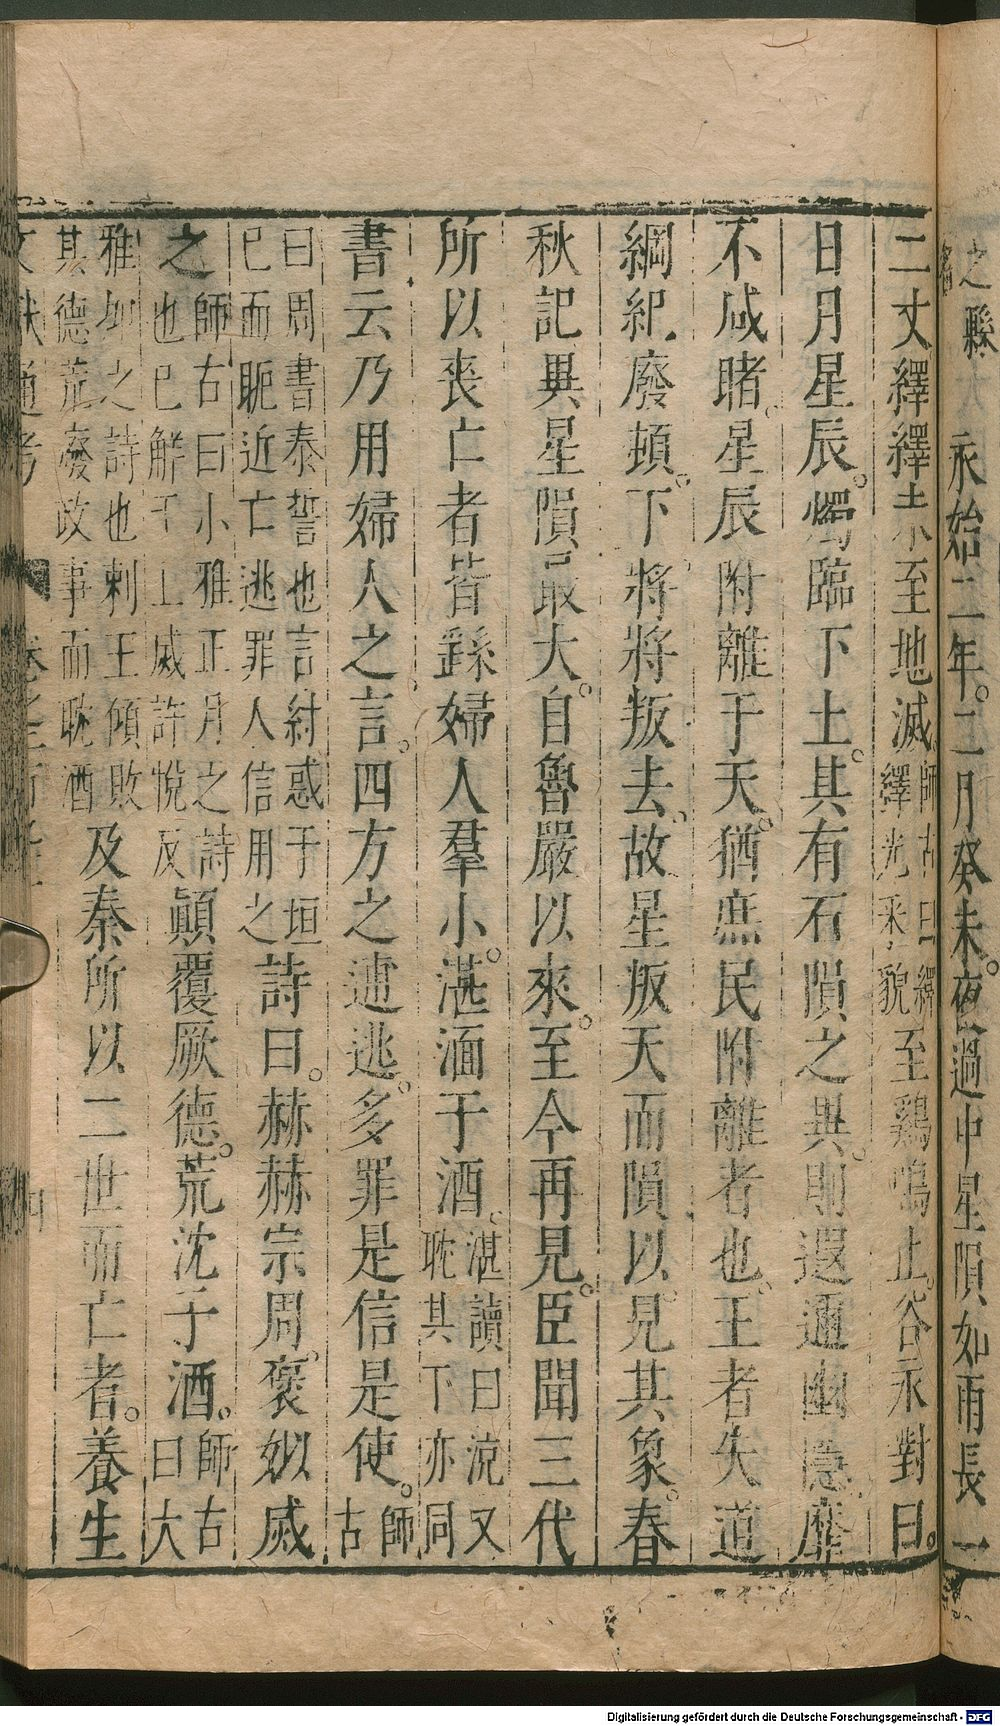 之縣
永始二年。二月癸未夜過中星隕如雨長一
二丈繹繹未至地滅師古曰繹繹光采貌至鷄鳴止。谷永對曰。
日月星辰。燭臨下土。其有石隕之異。則遐邇幽隱靡
不咸睹。星辰附離于天。猶庶民附離者也。王者失道
綱紀廢頓。下將將叛去。故星叛天而隕以見其象。春
秋記異星隕最大。自魯嚴以來。至今再見。臣聞三代
所以喪亡者皆繇婦人羣小。湛湎于酒。湛讀曰沉又耽其下亦同
書云乃用婦人之言。四方之逋逃。多罪是信是使。師古
曰周書泰誓也言紂惑于妲己而昵近亡逃罪人信用之詩曰。赫赫宗周。褒姒烕
之師古曰小雅正月之詩也已解于上烕許悅反顛覆厥德。荒沈于酒。師古曰大
雅抑之詩也刺王傾敗其德荒廢政事而耽酒及秦所以二世而亡者。養生
文獻通考
Digitalisierung gefördert durch die Deutsche Forschungsgemeinschaft - DFG